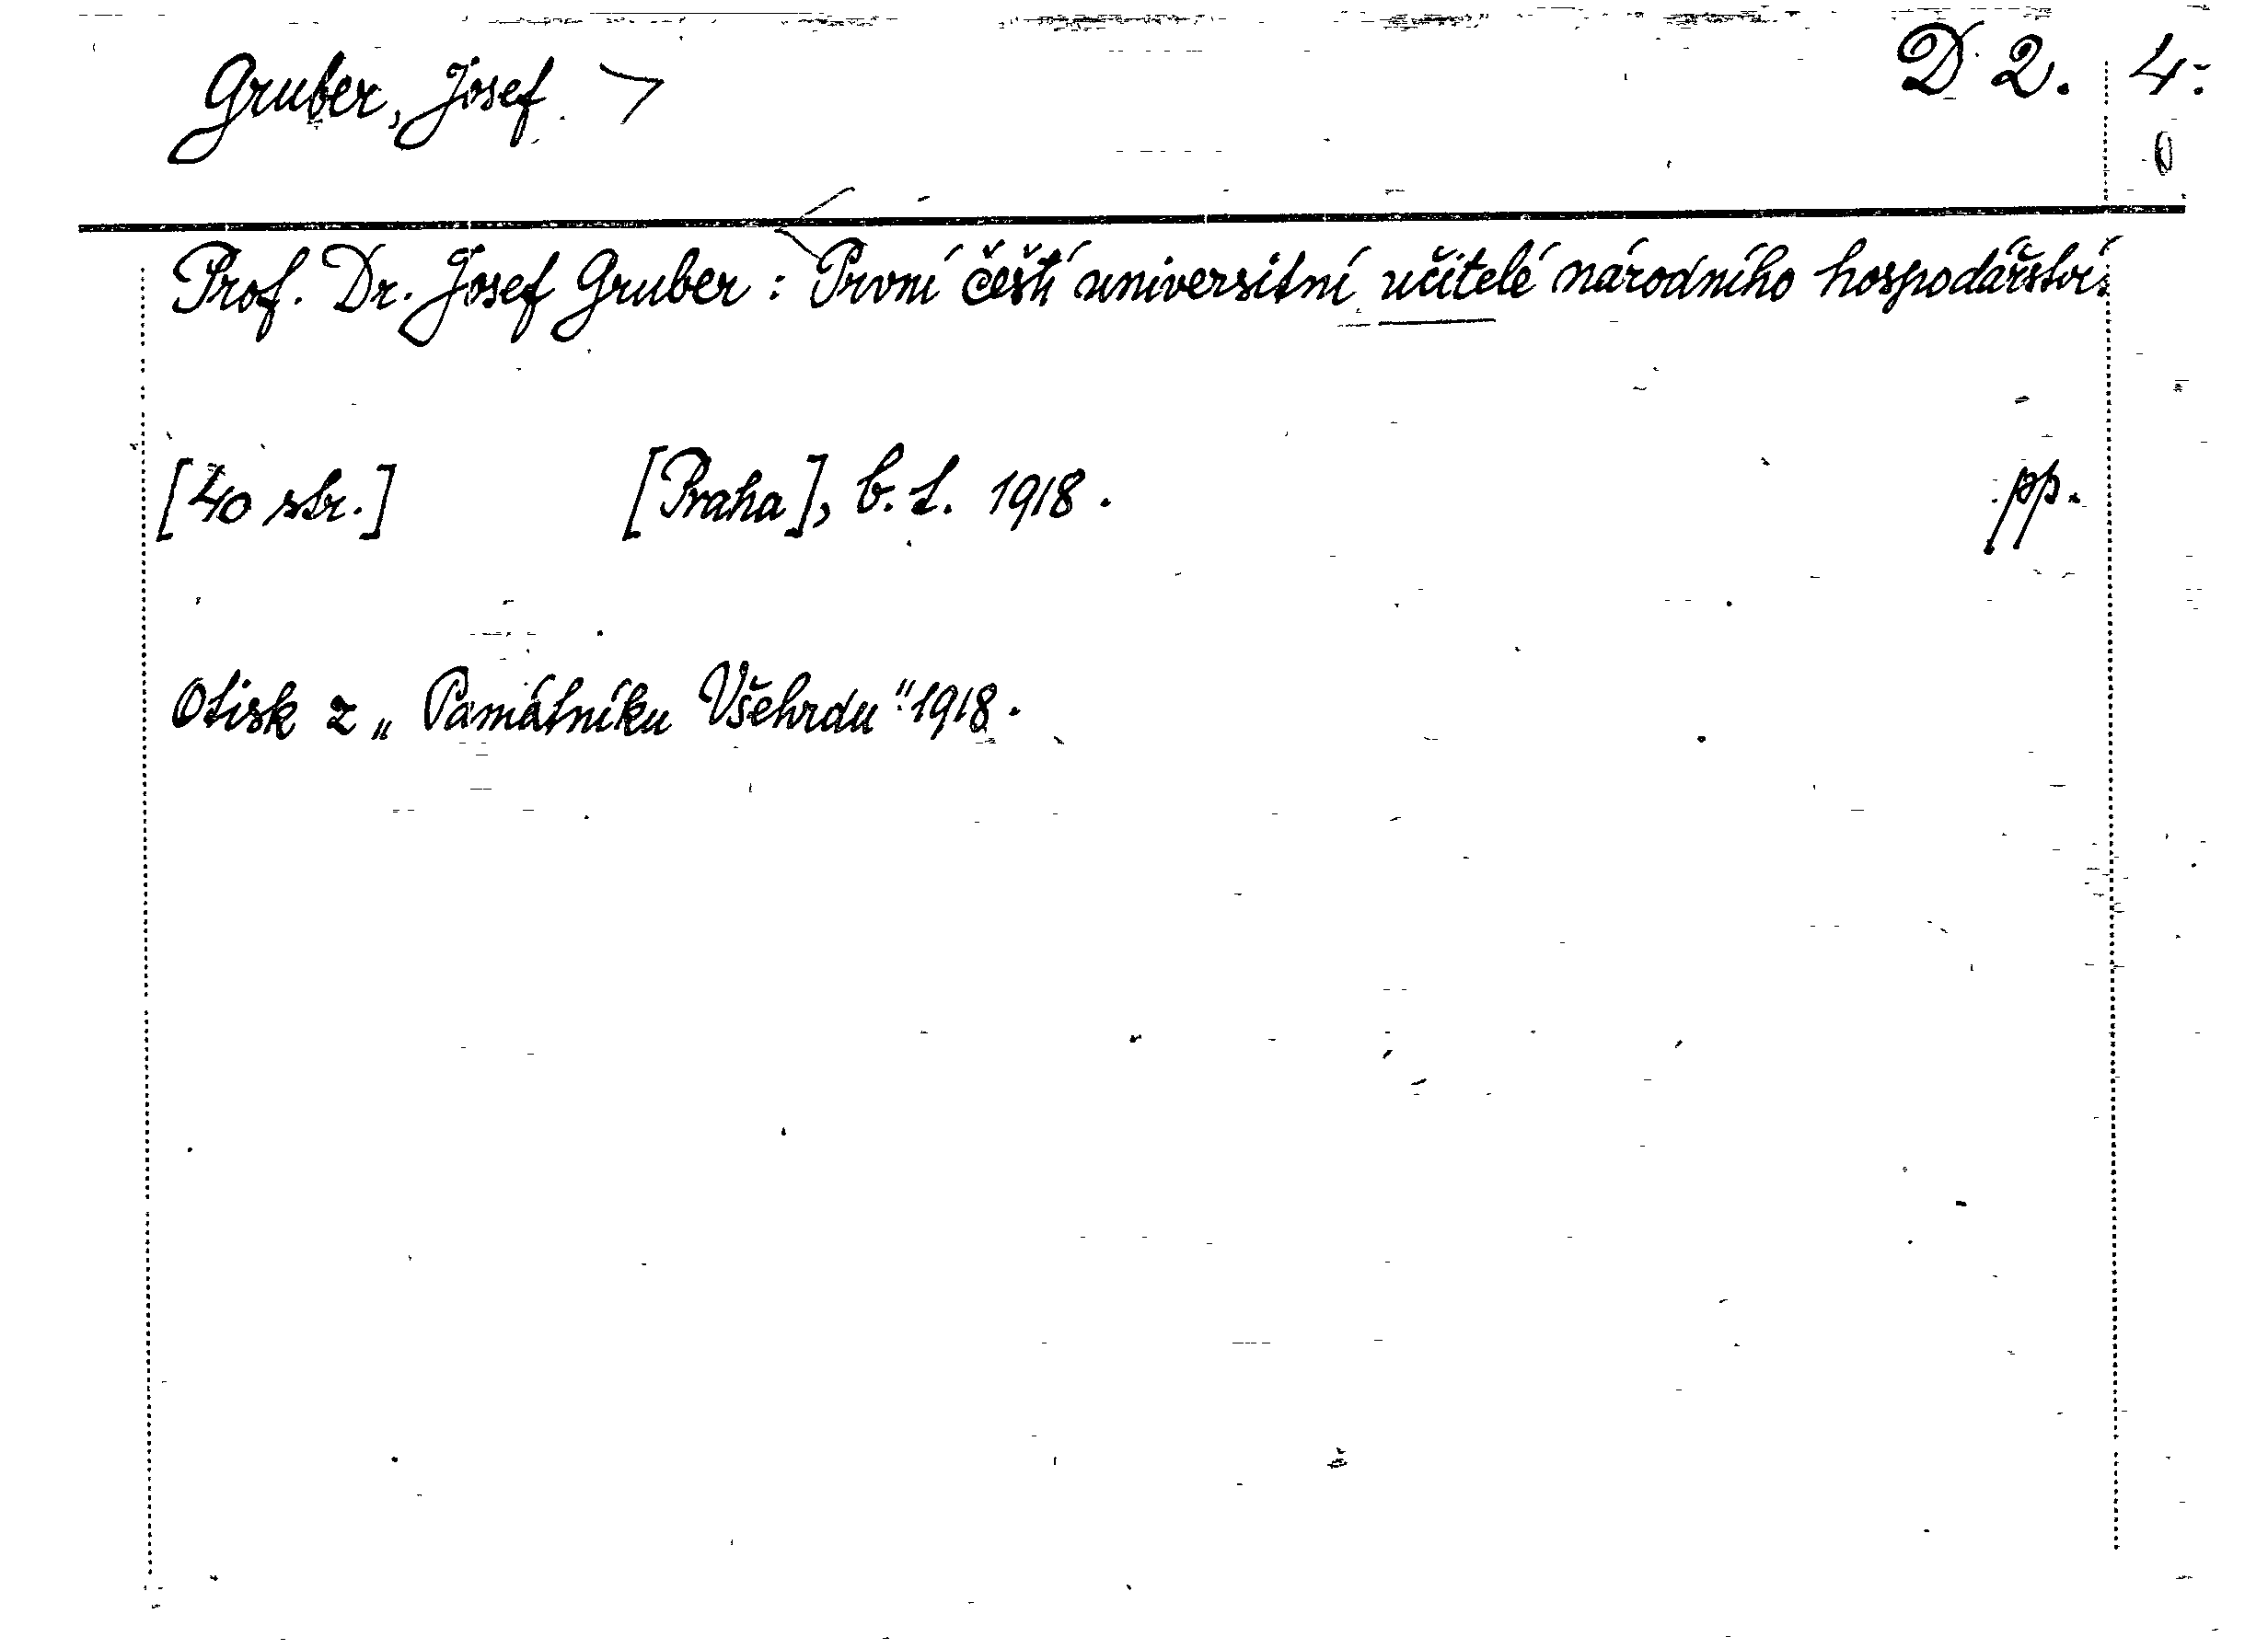 Gruber, Josef. D 2. 4.
0
Prof. Dr. Josef Gruber : První čeští universitní učitelé národního hospodářství.
[40 str.] [Praha], b. t. 1918. pp.
Otisk z „Památníku Všehrdu“ 1918.